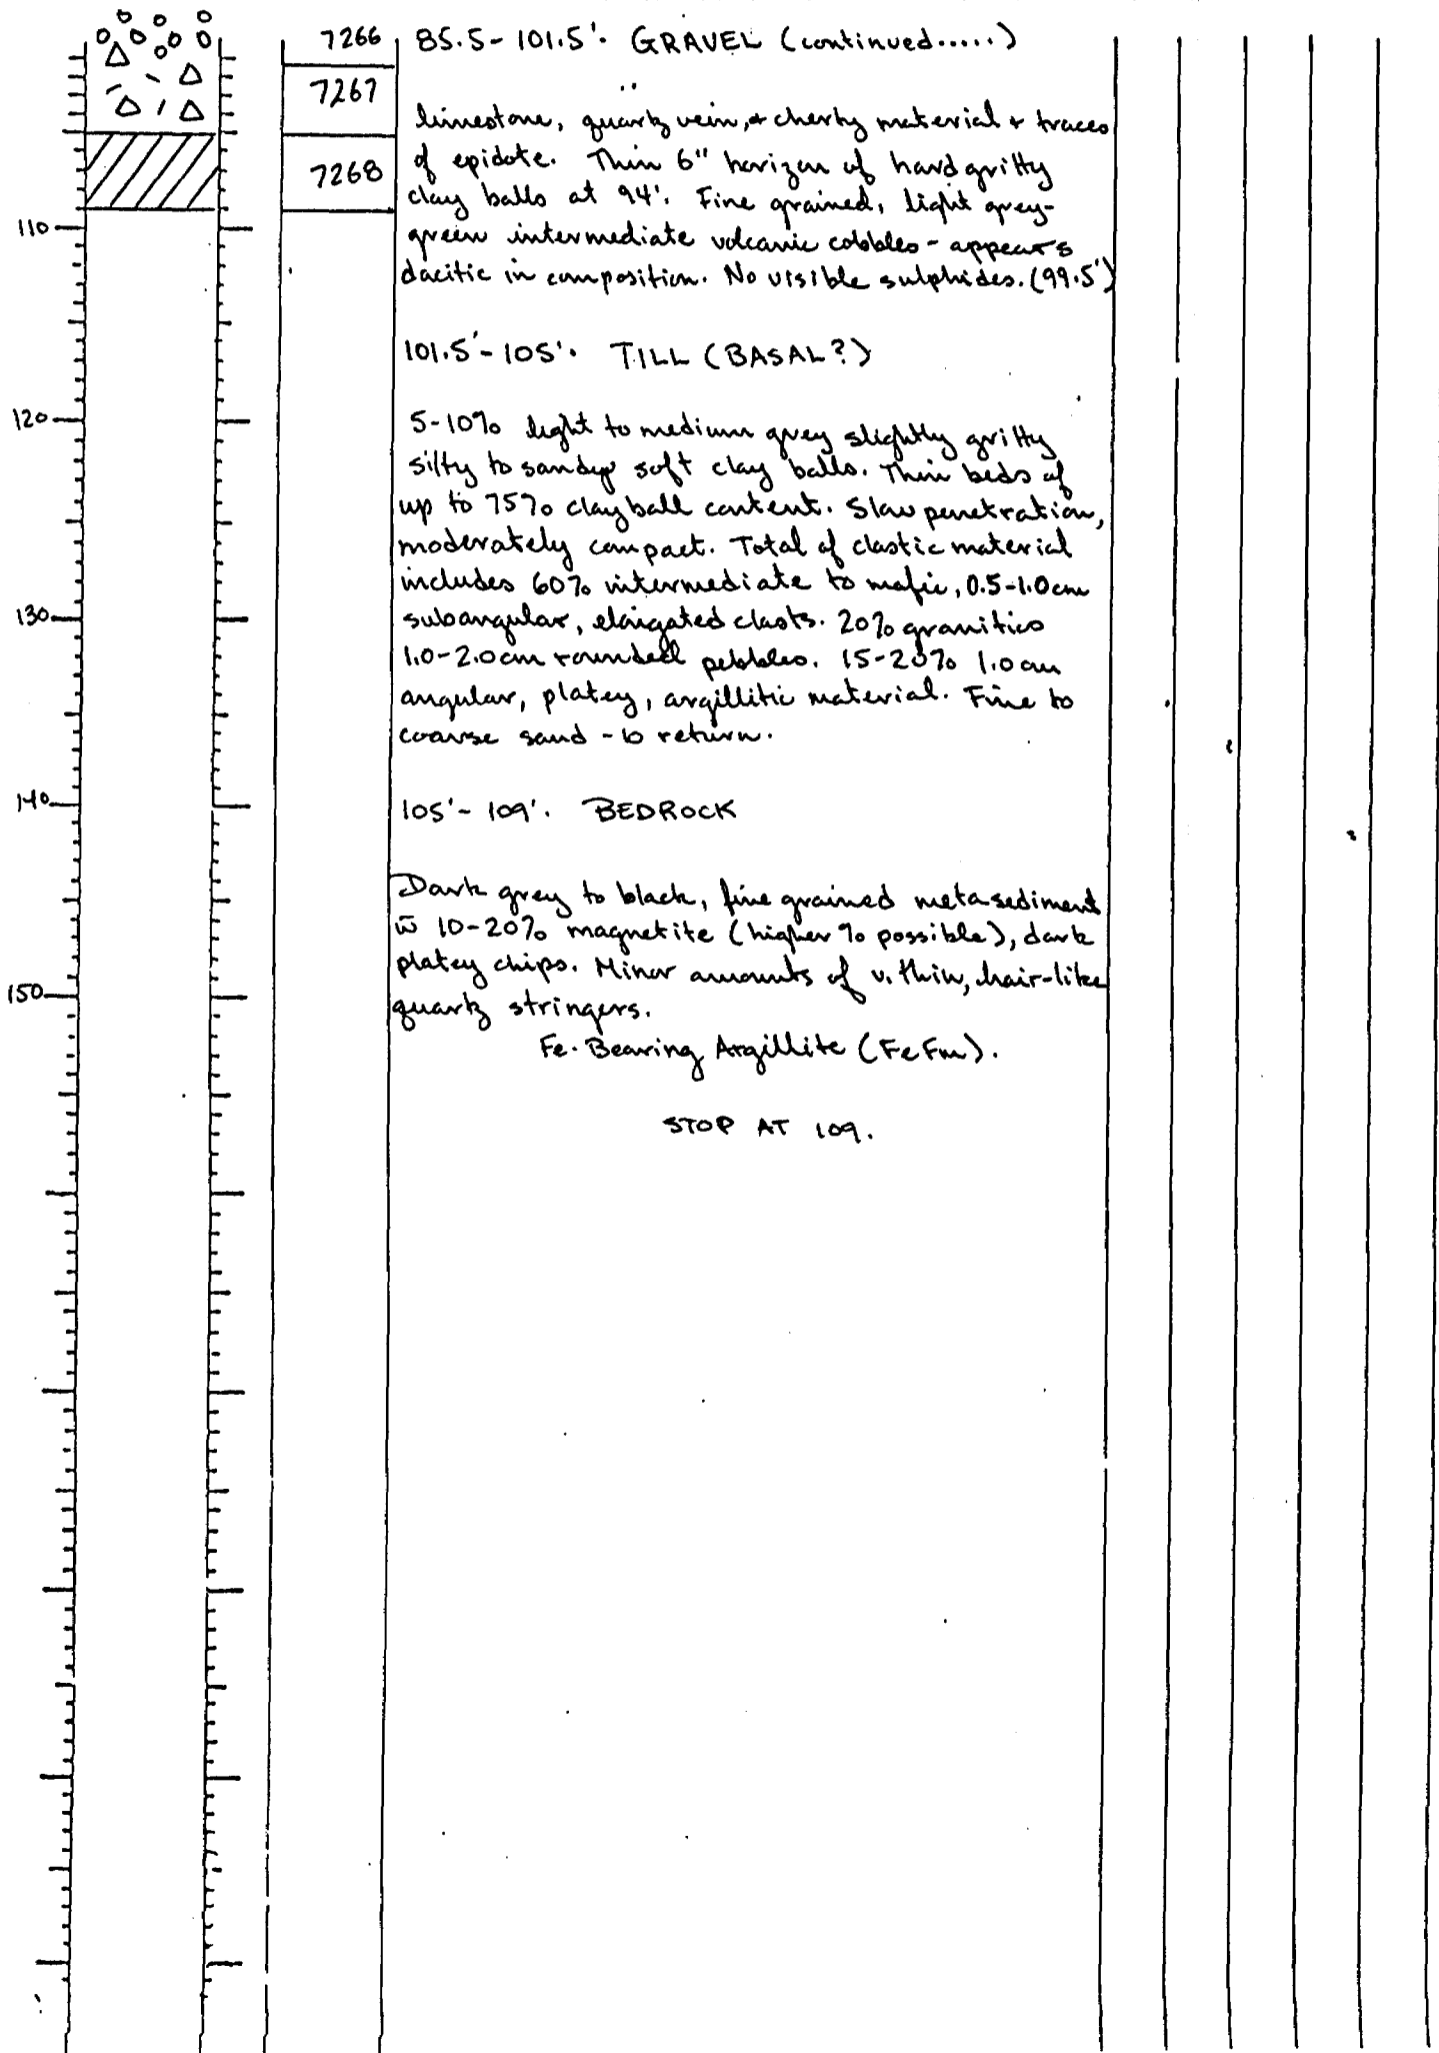 7266 85.5-101.5'. GRAVEL (continued.....)
7267
limestone, quartz vein, + cherty material + traces
of epidote. Thin 6" horizon of hard gritty
7268
clay balls at 94'. Fine grained, light grey-
110
green intermediate volcanic cobbles - appears
dacitic in composition. No visible sulphides. (99.5')
101.5'-105'. TILL (BASAL?)
120
5-10% light to medium grey slightly gritty
silty to sandy soft clay balls. Thin beds of
up to 75% clay ball content. Slow penetration,
moderately compact. Total of clastic material
includes 60% intermediate to mafic, 0.5-1.0cm
130
subangular, elongated clasts. 20% granitics
1.0-2.0cm rounded pebbles. 15-20% 1.0cm
angular, platey, argillitic material. Fine to
coarse sand - return.
140
105'-109'. BEDROCK
Dark grey to black, fine grained metasediment
w̄ 10-20% magnetite (higher % possible), dark
platey chips. Minor amounts of v. thin, hair-like
150
quartz stringers.
Fe. Bearing Argillite (FeFm).
STOP AT 109.